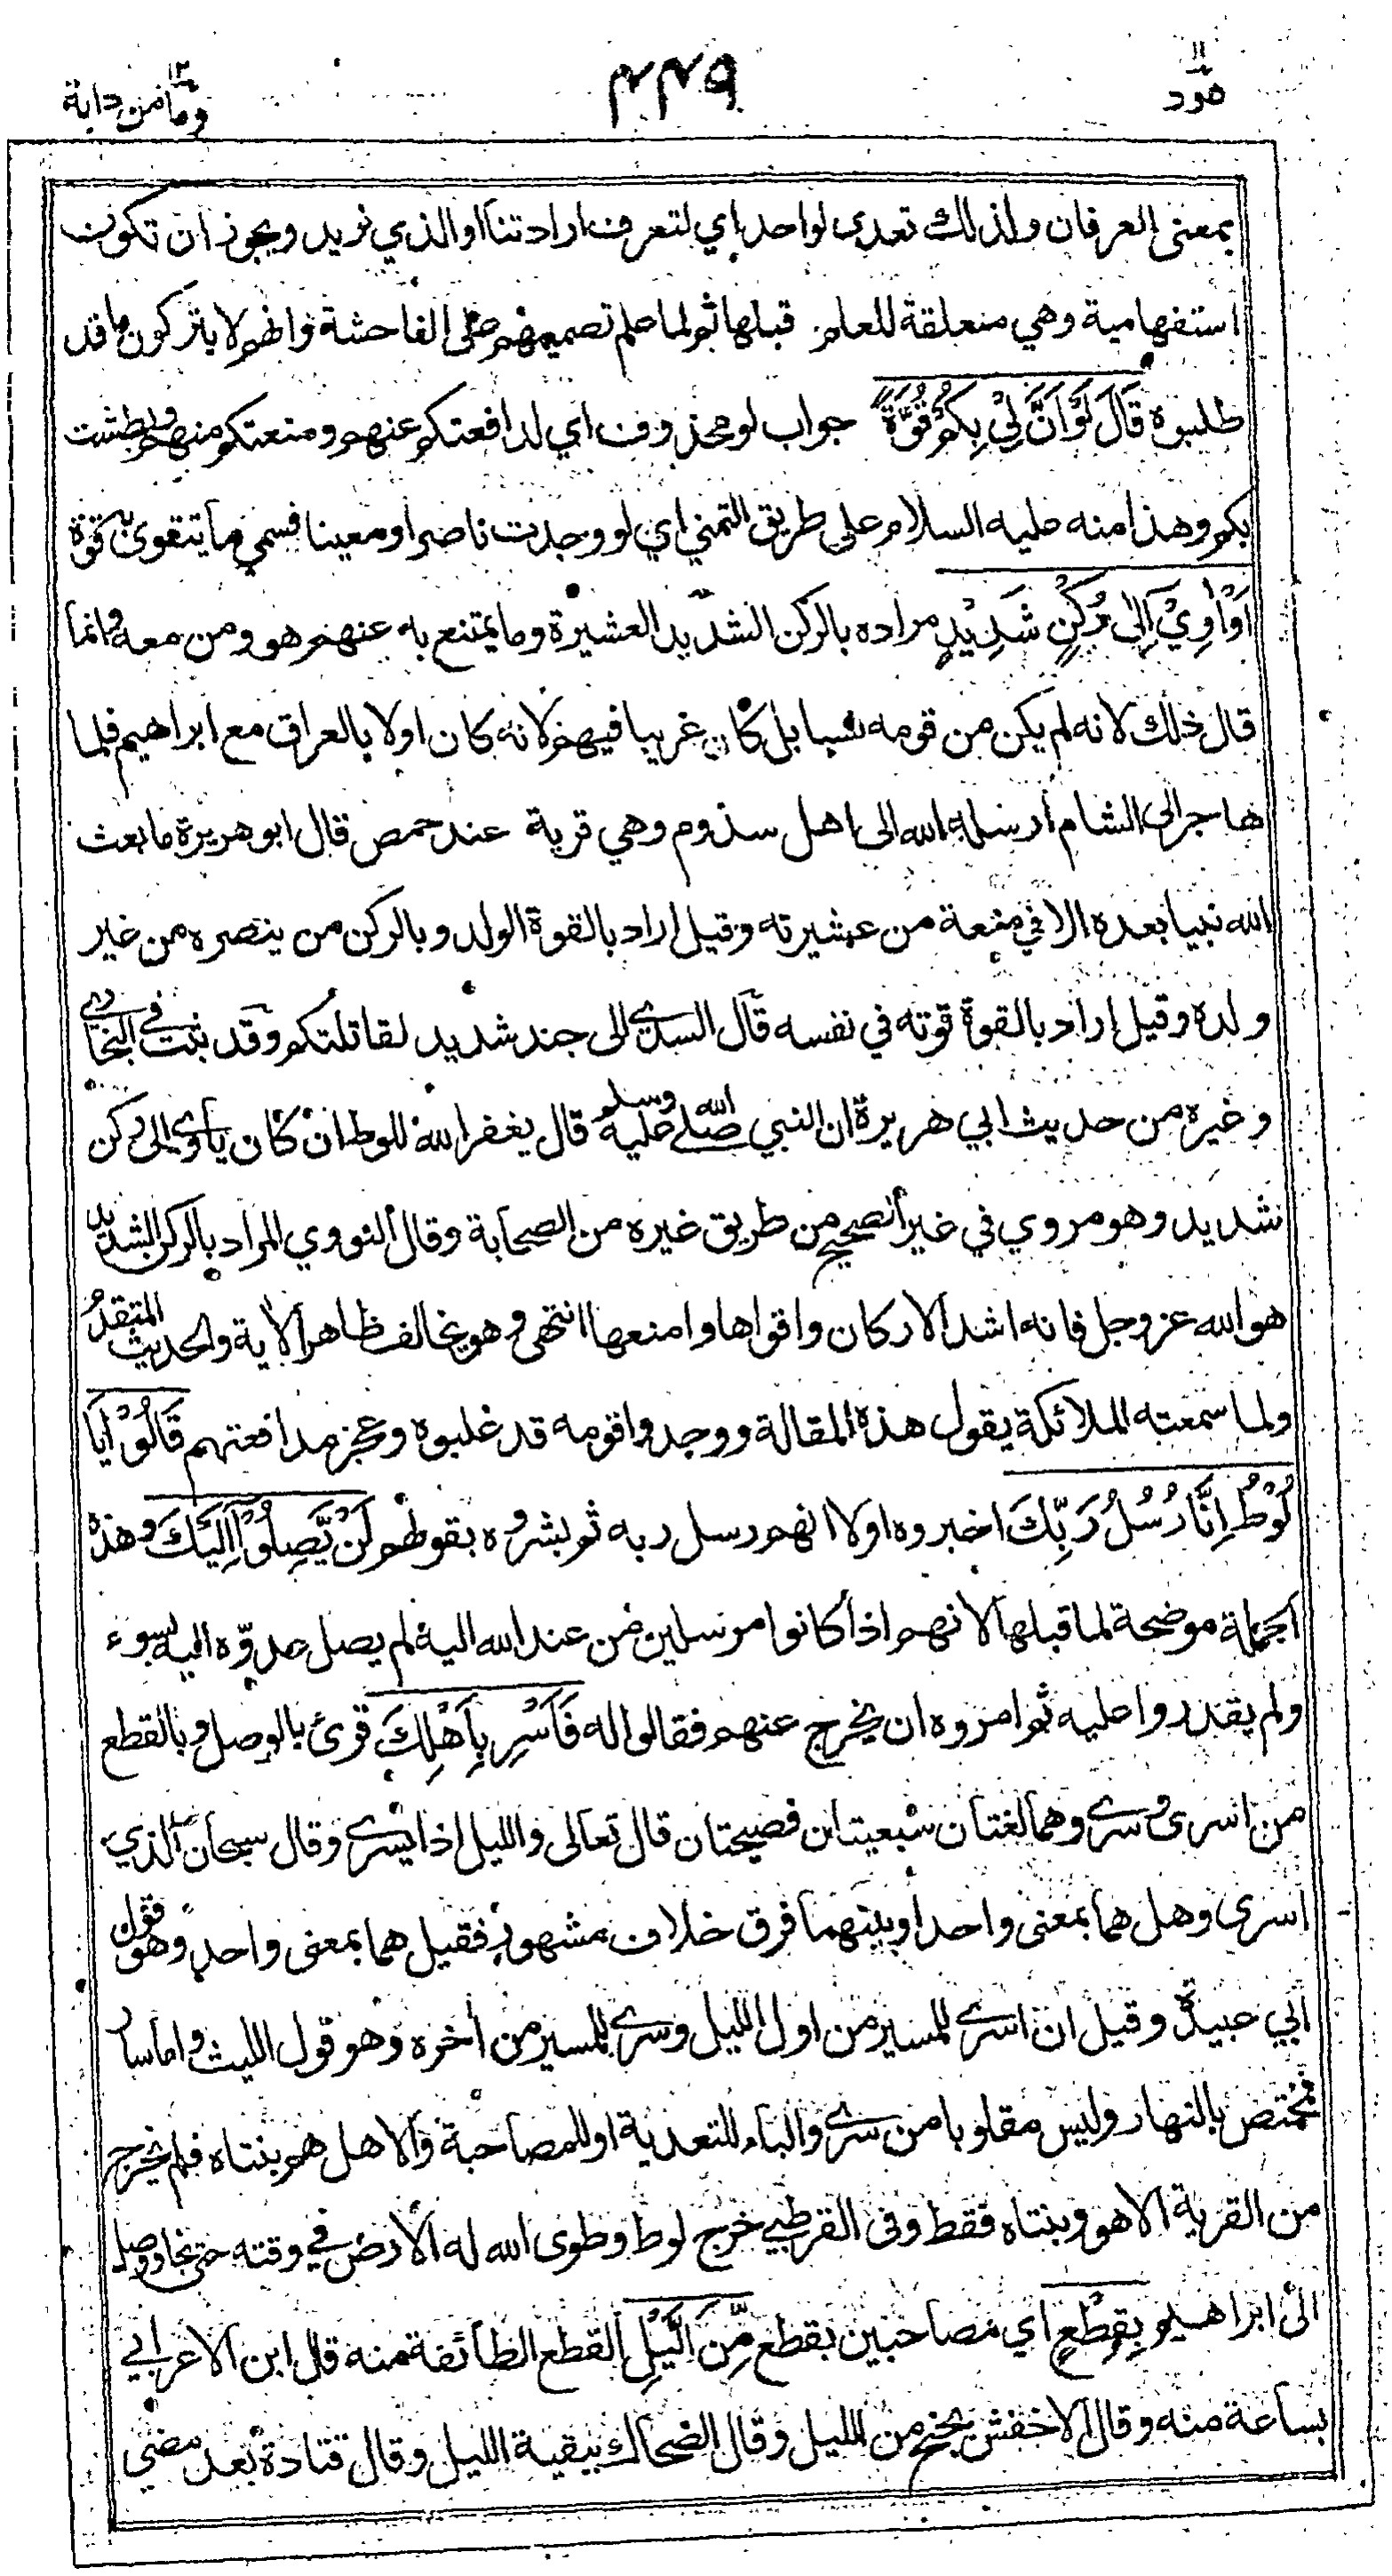 هود ١١
٤٤٩
وما من دابة ١٢
بمعنى العرفان ولذلك تعدى لواحد اي لتعرف ارادتنا او الذي نريد ويجوز ان تكون
استفهامية وهي متعلقة للعلم قبلها ثم لما علم تصميمهم على الفاحشة وانهم لا يتركون ما قد
طلبوه قَالَ لَوْ اَنَّ لِيْ بِكُمْ قُوَّةً جواب لو محذوف اي لدافعتكم عنهم ومنعتكم منهم وبطشت
بكم وهذا منه عليه السلام على طريق التمني اي لو وجدت ناصرا ومعينا فسمي ما يتقوى به قوة
اَوْ اٰوِيْ اِلٰى رُكْنٍ شَدِيْدٍ مراده بالركن الشديد العشيرة وما يمتنع به عنهم هو ومن معه وانما
قال ذلك لانه لم يكن من قومه نسبا بل كان غريبا فيهم لانه كان اولا بالعراق مع ابراهيم فلما
هاجر الى الشام أرسله الله الى اهل سذوم وهي قرية عند حمص قال ابو هريرة ما بعث
الله نبيا بعده الا في منعة من عشيرته وقيل اراد بالقوة الولد وبالركن من ينصره من غير
ولده وقيل اراد بالقوة قوته في نفسه قال السدي الى جند شديد لقاتلتكم وقد ثبت في البخاري
وغيره من حديث ابي هريرة ان النبي صلى الله عليه وسلم قال يغفر الله للوط ان كان يأوي الى ركن
شديد وهو مروي في غير الصحيح من طريق غيره من الصحابة وقال النووي المراد بالركن الشديد
هو الله عز وجل فانه اشد الاركان واقواها وامنعها انتهى وهو يخالف ظاهر الاية والحديث المتقدم
ولما سمعته الملائكة يقول هذه المقالة ووجدوا قومه قد غلبوه وعجز مدافعتهم قَالُوْا يَا
لُوْطُ اِنَّا رُسُلُ رَبِّكَ اخبروه اولا انهم رسل ربه ثم بشروه بقولهم لَنْ يَّصِلُوْا اِلَيْكَ وهذه
الجملة موضحة لما قبلها لانهم اذا كانوا مرسلين من عند الله اليه لم يصل عدوّه اليه بسوء
ولم يقدروا عليه ثم امروه ان يخرج عنهم فقالوا له فَاَسْرِ بِاَهْلِكَ قرئ بالوصل وبالقطع
من اسرى وسرى وهما لغتان سبعيتان فصيحتان قال تعالى والليل اذا يسري وقال سبحان الذي
اسرى وهل هما بمعنى واحد او بينهما فرق خلاف مشهور فقيل هما بمعنى واحد وهو قول
ابي عبيدة وقيل ان اسرى للمسير من اول الليل وسرى للمسير من أخره وهو قول الليث واما سار
فمختص بالنهار وليس مقلوبا من سرى والباء للتعدية او للمصاحبة والاهل هم بنتاه فلم يخرج
من القرية الا هو وبنتاه فقط وفي القرطبي خرج لوط وطوى الله له الأرض في وقته حتى نجا ووصل
الى ابراهيم بِقِطْعٍ اي مصاحبين بقطع مِّنَ الَّيْلِ القطع الطائفة منه قال ابن الاعرابي
بساعة منه وقال الاخفش بجنح من الليل وقال الضحاك ببقية الليل وقال قتادة بعد مضي